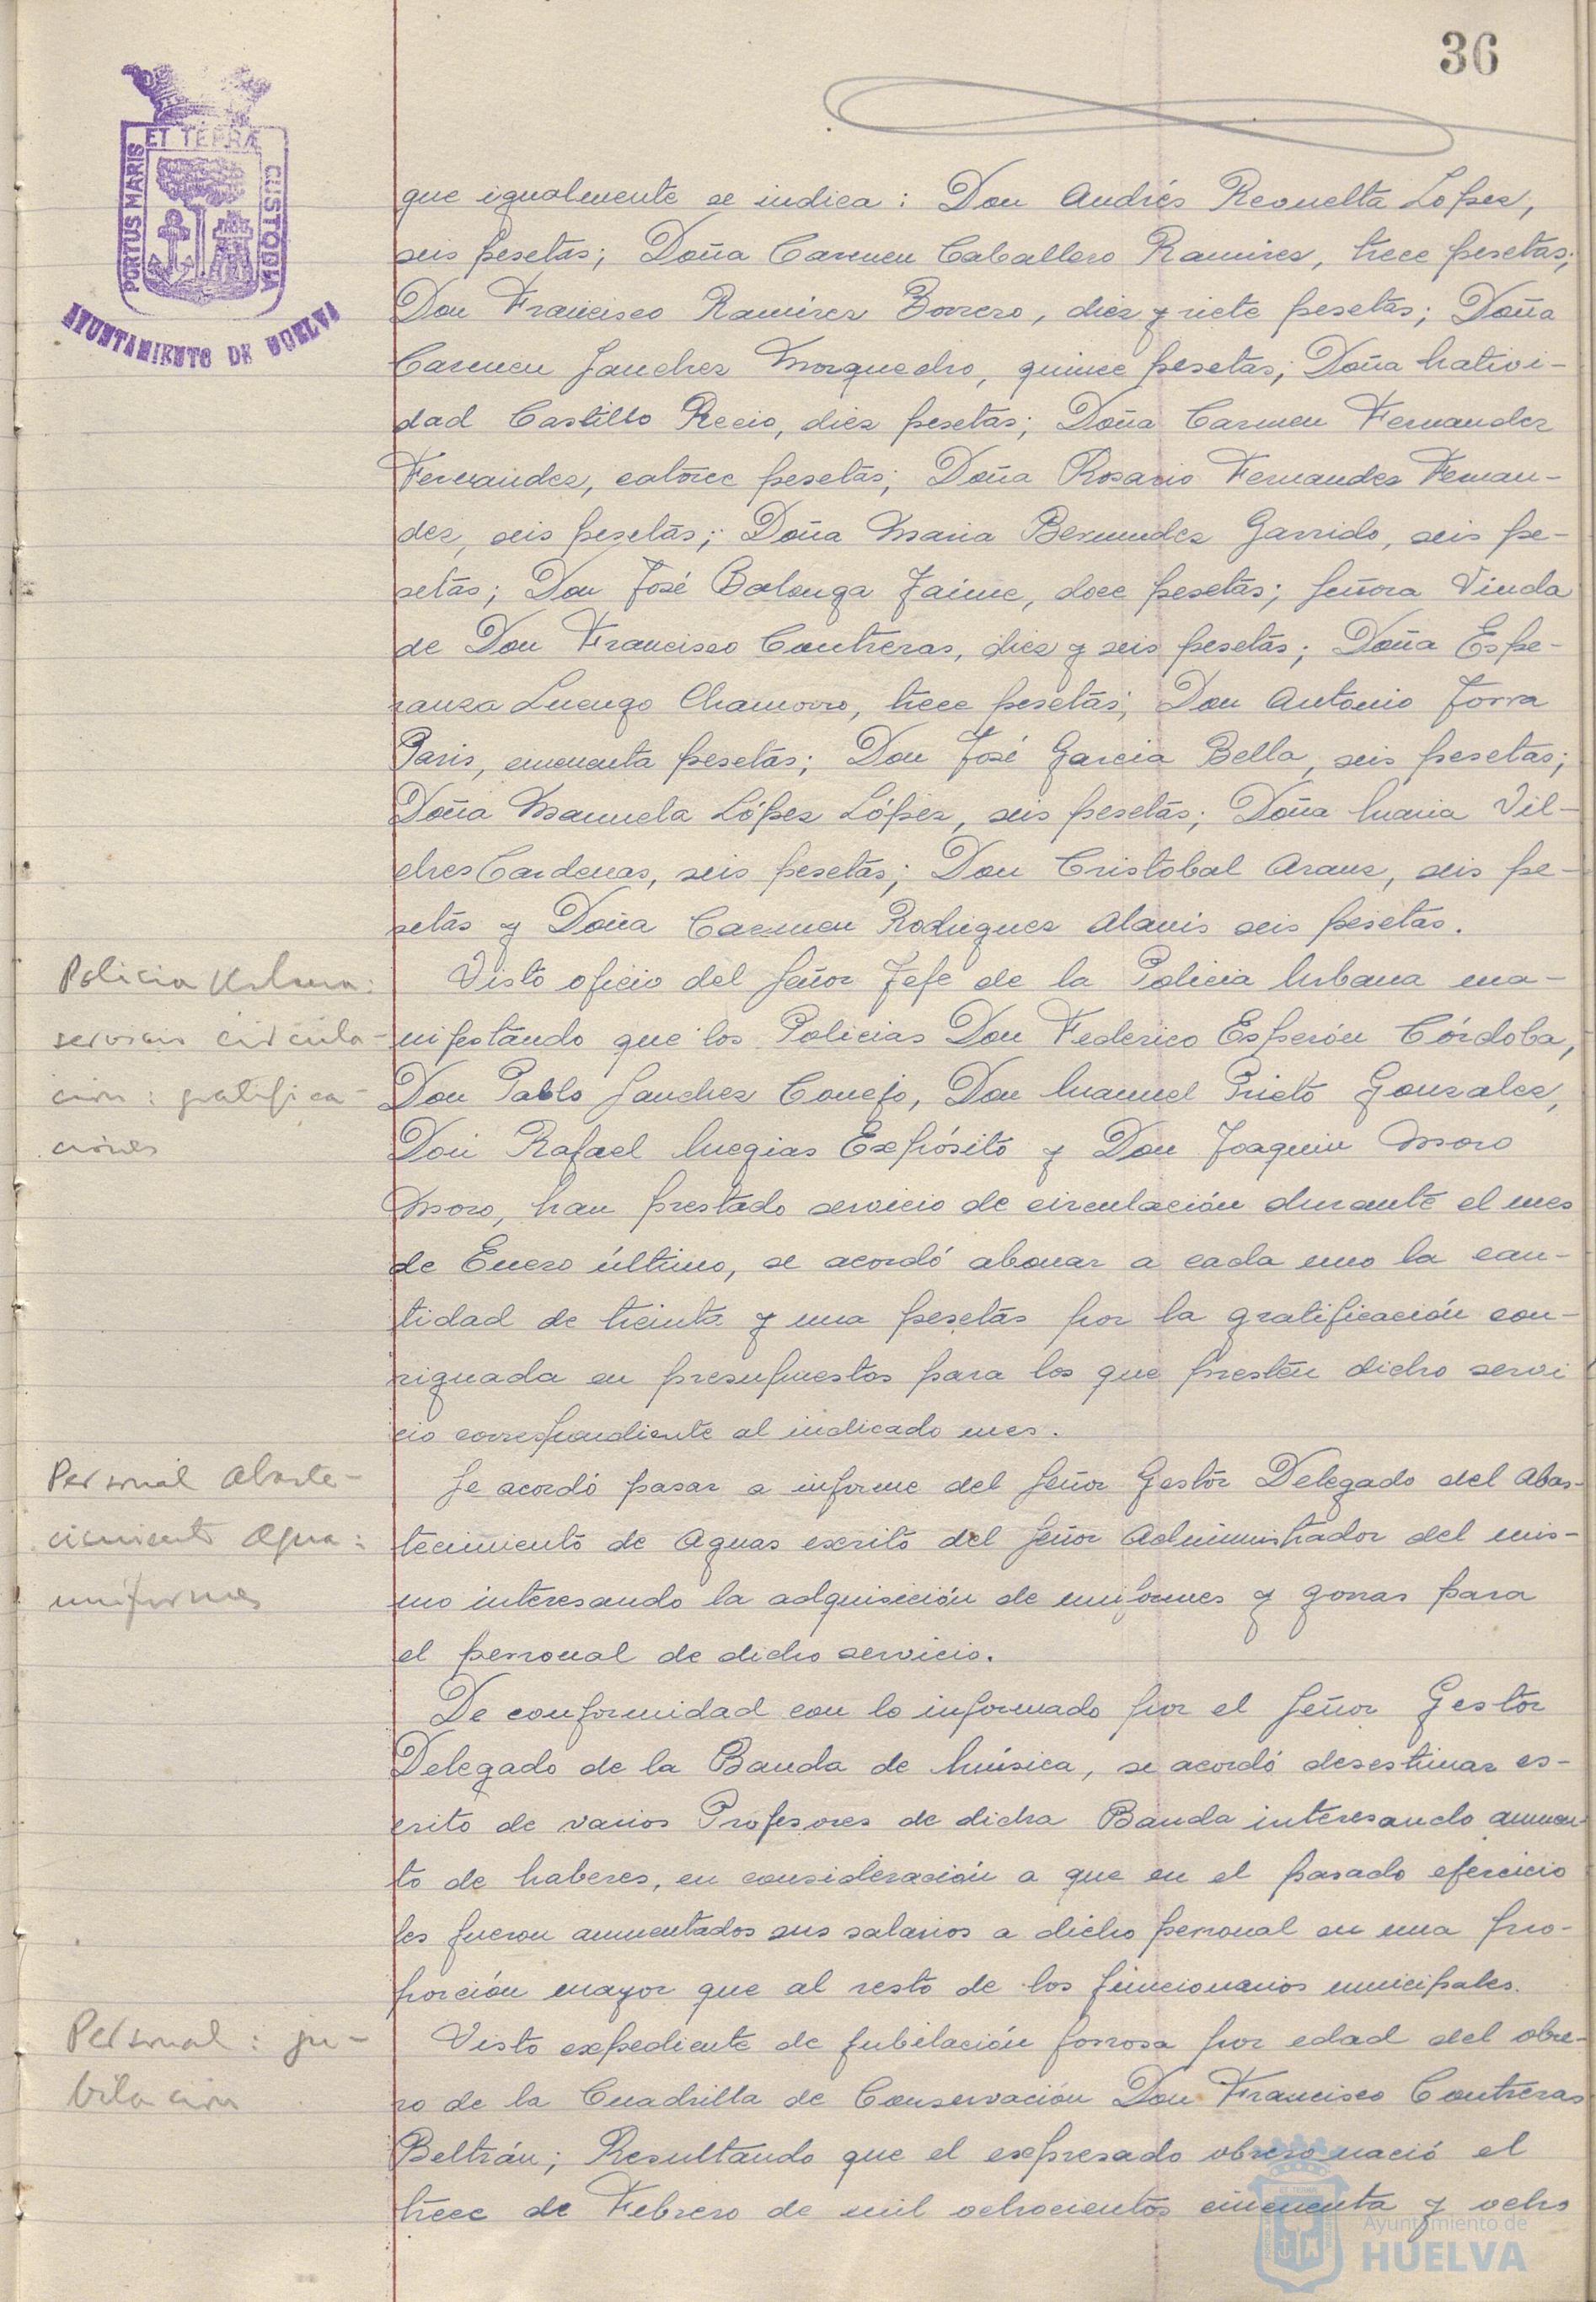 36
ET TERRÆ
PORTUS MARIS
CUSTODIA
AYUNTAMIENTO DE HUELVA
que igualmente se indica: Don Andrés Revuelta Lopez,
seis pesetas; Doña Carmen Caballero Ramirez, trece pesetas;
Don Francisco Ramirez Borrero, diez y siete pesetas; Doña
Carmen Sanchez Mosquedro, quince pesetas; Doña Nativi-
dad Castillo Recio, diez pesetas; Doña Carmen Fernandez
Fernandez, catorce pesetas; Doña Rosario Fernandez Fernan-
dez, seis pesetas; Doña Maria Bermudez Garrido, seis pe-
setas; Don José Balonga Jaime, doce pesetas; Señora Viuda
de Don Francisco Contreras, diez y seis pesetas; Doña Espe-
ranza Luengo Chamorro, trece pesetas; Don Antonio Jorva
Paris, cincuenta pesetas; Don José Garcia Bella, seis pesetas;
Doña Manuela López López, seis pesetas; Doña Maria Vil-
ches Cardenas, seis pesetas; Don Cristobal Arauz, seis pe-
setas y Doña Carmen Rodriguez Alanis seis pesetas.
Policia Urbana:
servicios circula-
cion: gratifica-
ciones
Visto oficio del Señor Jefe de la Policia Urbana ma-
nifestando que los Policias Don Federico Esperón Córdoba,
Don Pablo Sanchez Conejo, Don Manuel Prieto Gonzalez,
Don Rafael Megias Expósito y Don Joaquin Moro
Moro, han prestado servicio de circulación durante el mes
de Enero último, se acordó abonar a cada uno la can-
tidad de treinta y una pesetas por la gratificación con-
signada en presupuestos para los que presten dicho servi
cio correspondiente al indicado mes.
Personal Abaste-
cimiento Agua:
uniformes
Se acordó pasar a informe del Señor Gestor Delegado del Abas-
tecimiento de Aguas escrito del Señor Administrador del mis-
mo interesando la adquisición de uniformes y gorras para
el personal de dicho servicio.
De conformidad con lo informado por el Señor Gestor
Delegado de la Banda de Música, se acordó desestimar es-
crito de varios Profesores de dicha Banda interesando aumen-
to de haberes, en consideración a que en el pasado ejercicio
les fueron aumentados sus salarios a dicho personal en una pro-
porción mayor que al resto de los funcionarios municipales.
Personal: ju-
bilacion
Visto expediente de jubilación forzosa por edad del obre-
ro de la Cuadrilla de Conservación Don Francisco Contreras
Beltrán; Resultando que el expresado obrero nació el
trece de Febrero de mil ochocientos cincuenta y ocho
Ayuntamiento de
HUELVA